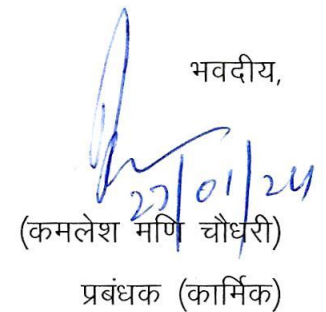 भवदीय,
27/01/24
(कमलेश मणि चौधरी)
प्रबंधक (कार्मिक)